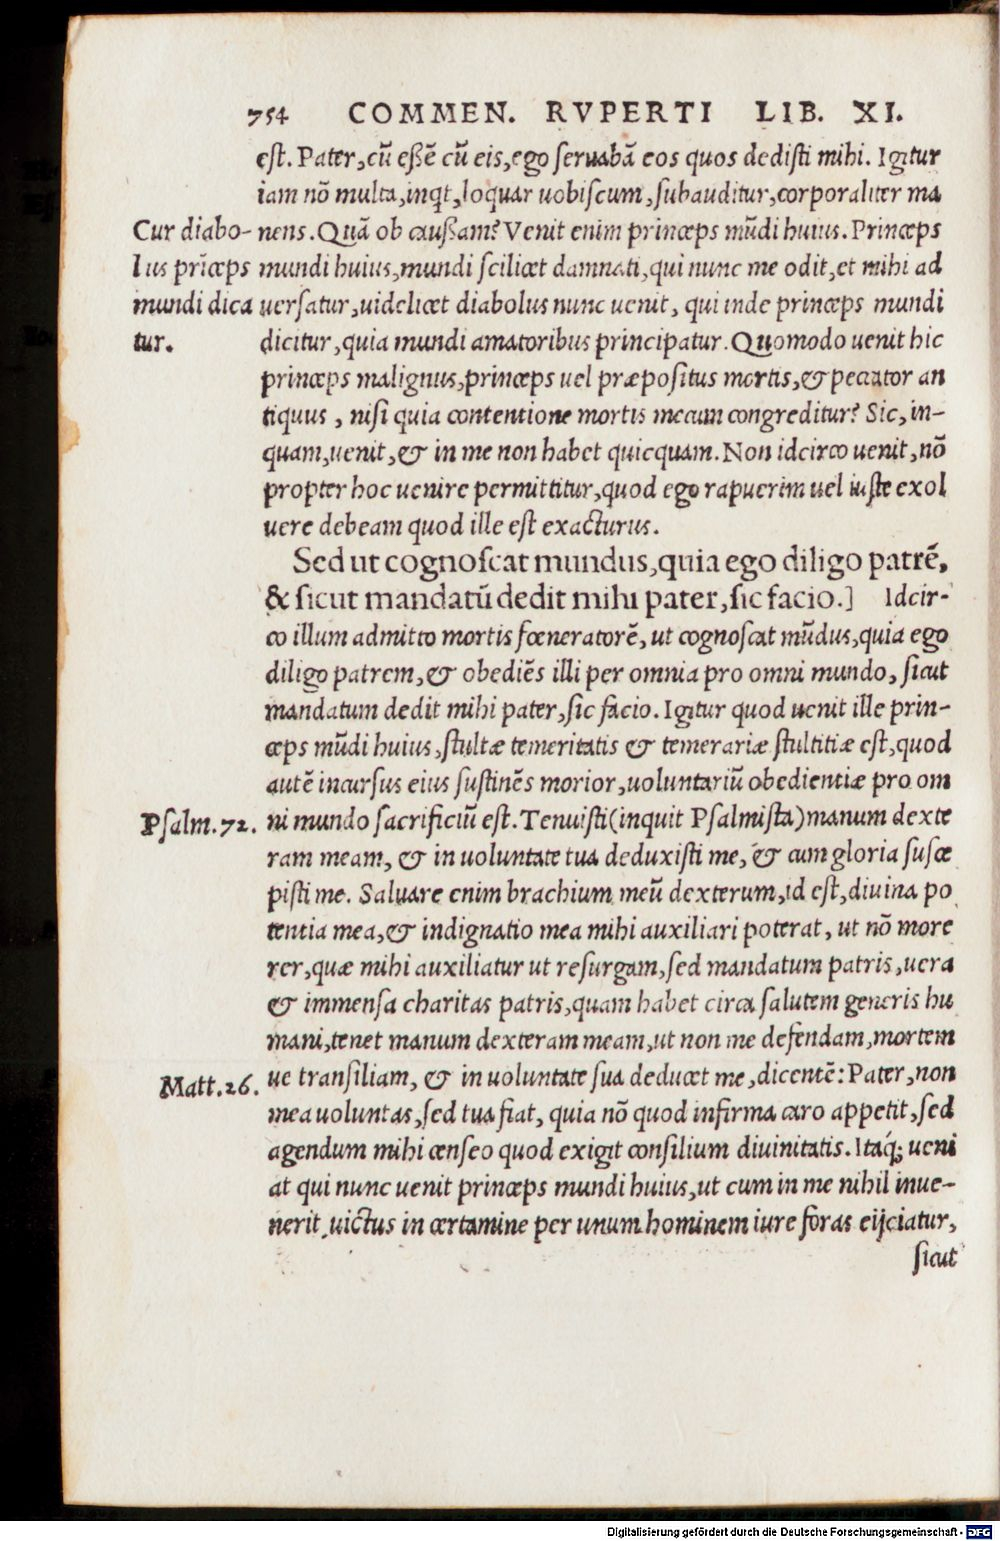 754 COMMEN. RVPERTI LIB. XI.
est. Pater, cũ eßẽ cũ eis, ego seruabã eos quos dedisti mihi. Igitur
iam nõ multa, inqt, loquar uobiscum, subauditur, corporaliter ma
nens. Quã ob caußam? Venit enim princeps mũdi huius. Princeps
mundi huius, mundi scilicet damnati, qui nunc me odit, et mihi ad
uersatur, uidelicet diabolus nunc uenit, qui inde princeps mundi
dicitur, quia mundi amatoribus principatur. Quomodo uenit hic
princeps malignus, princeps uel præpositus mortis, & peccator an
tiquus, nisi quia contentione mortis mecum congreditur? Sic, in-
quam, uenit, & in me non habet quicquam. Non idcirco uenit, nõ
propter hoc uenire permittitur, quod ego rapuerim uel iuste exol
uere debeam quod ille est exacturus.
Cur diabo-
lus prĩceps
mundi dica
tur.
Sed ut cognoscat mundus, quia ego diligo patrẽ,
& sicut mandatũ dedit mihi pater, sic facio.] Idcir-
co illum admitto mortis fœneratorẽ, ut cognoscat mũdus, quia ego
diligo patrem, & obediẽs illi per omnia pro omni mundo, sicut
mandatum dedit mihi pater, sic facio. Igitur quod uenit ille prin-
ceps mũdi huius, stultæ temeritatis & temerariæ stultitiæ est, quod
autẽ incursus eius sustinẽs morior, uoluntariũ obedientiæ pro om
ni mundo sacrificiũ est. Tenuisti (inquit Psalmista) manum dexte
ram meam, & in uoluntate tua deduxisti me, & cum gloria susce
pisti me. Saluare enim brachium meũ dexterum, id est, diuina po
tentia mea, & indignatio mea mihi auxiliari poterat, ut nõ more
rer, quæ mihi auxiliatur ut resurgam, sed mandatum patris, uera
& immensa charitas patris, quam habet circa salutem generis hu
mani, tenet manum dexteram meam, ut non me defendam, mortem
ue transiliam, & in uoluntate sua deducet me, dicentẽ: Pater, non
mea uoluntas, sed tua fiat, quia nõ quod infirma caro appetit, sed
agendum mihi censeo quod exigit consilium diuinitatis. Itaq; ueni
at qui nunc uenit princeps mundi huius, ut cum in me nihil inue-
nerit, uictus in certamine per unum hominem iure foras eijciatur,
sicut
Psalm. 72.
Matt. 26.
Digitalisierung gefördert durch die Deutsche Forschungsgemeinschaft - DFG